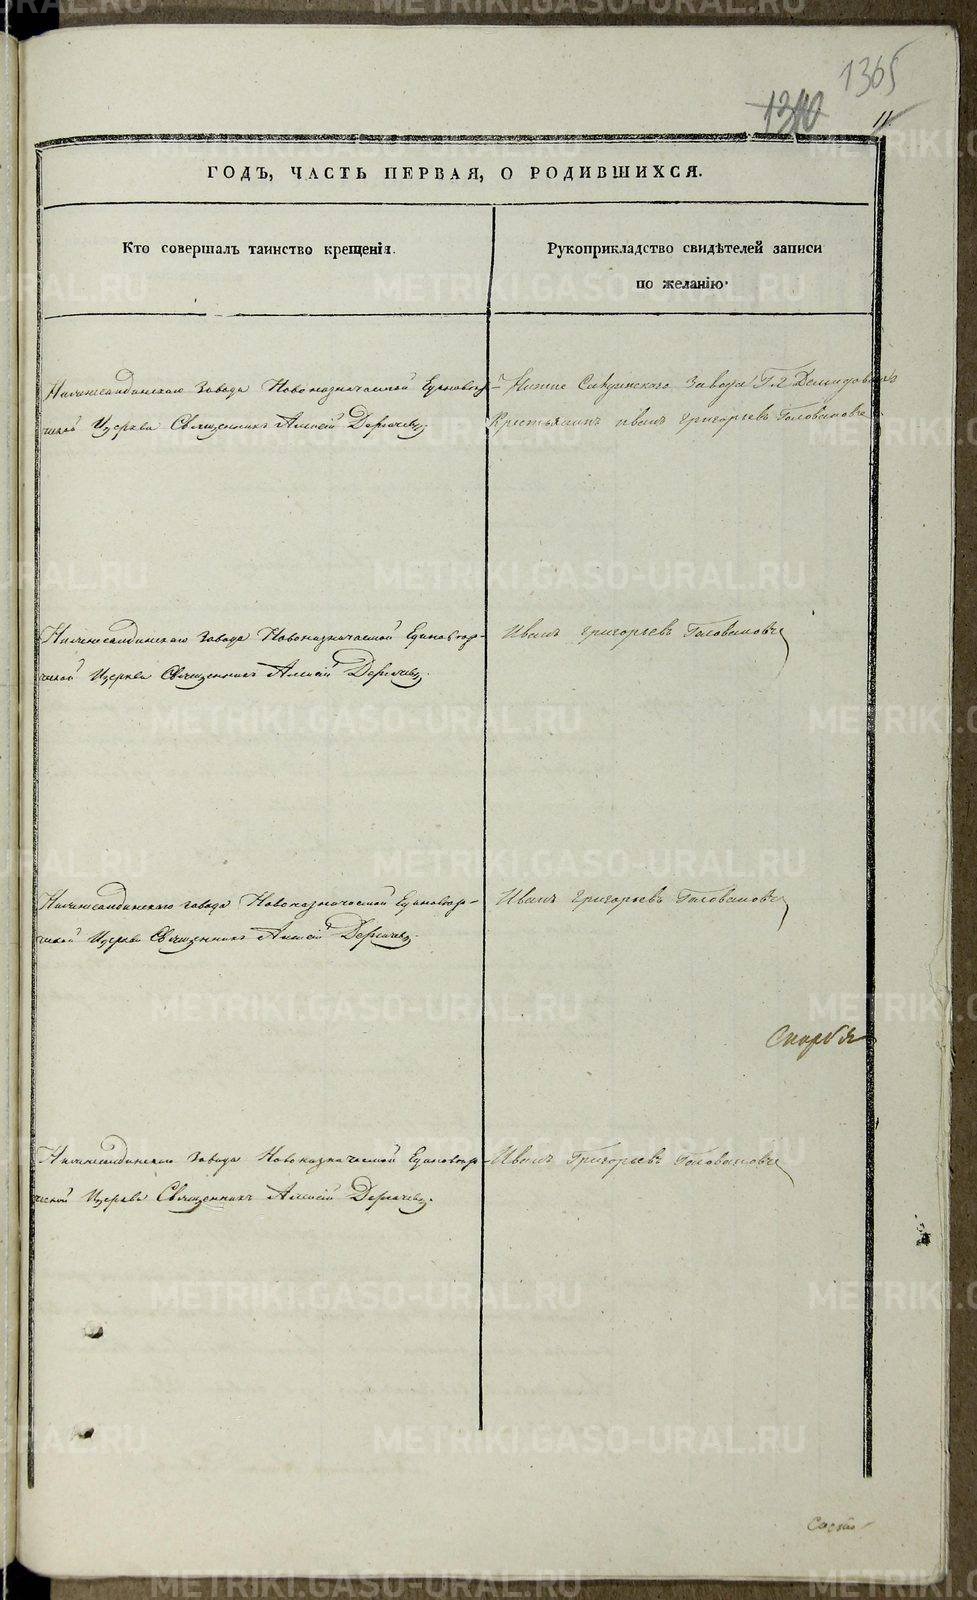 1365
1340
11
ГОДЪ, ЧАСТЬ ПЕРВАЯ, О РОДИВШИХСЯ.
Кто совершалъ таинство крещенія.
Рукоприкладство свидѣтелей записи
по желанію.
Нижнесалдинскаго Завода Новоназначаемой Единовѣр-
ческой Церкви Священникъ Алексій Дергачевъ.
Нижне Салдинскаго Завода Гг Демидовыхъ
Крестьянинъ Иванъ Григорьевъ Головановъ
Нижнесалдинскаго Завода Новоназначаемой Единовѣр-
ческой Церкви Священникъ Алексій Дергачевъ.
Иванъ Григорьевъ Головановъ
Нижнесалдинскаго Завода Новоназначаемой Единовѣр-
ческой Церкви Священникъ Алексій Дергачевъ.
Иванъ Григорьевъ Головановъ
Нижнесалдинскаго Завода Новоназначаемой Единовѣр-
ческой Церкви Священникъ Алексій Дергачевъ.
Иванъ Григорьевъ Головановъ
METRIKI.GASO-URAL.RU